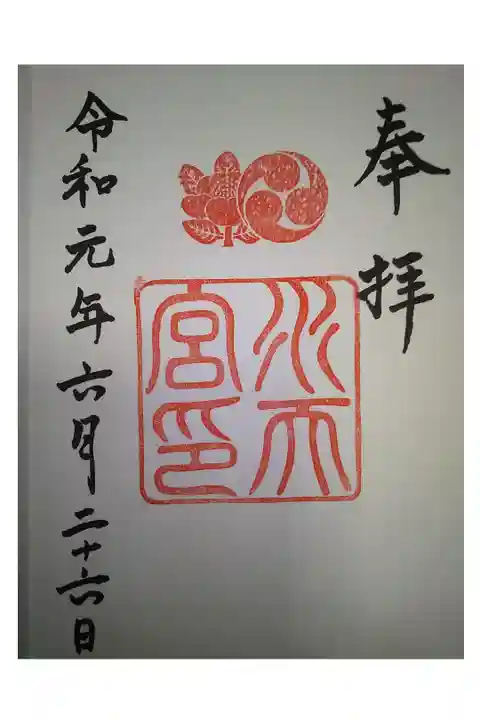 奉拝
水天
宮印
令和元年六月二十六日